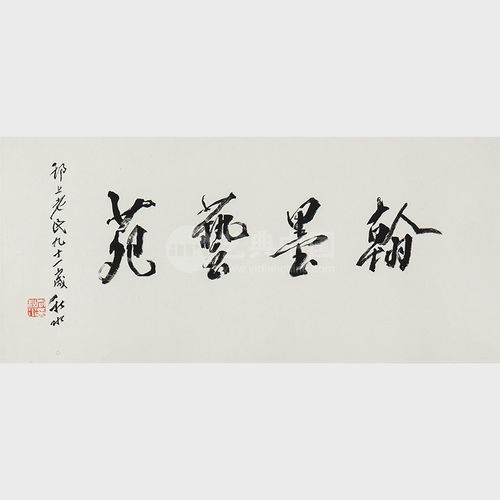 翰墨藝苑
邗上老民九十一歲秋水